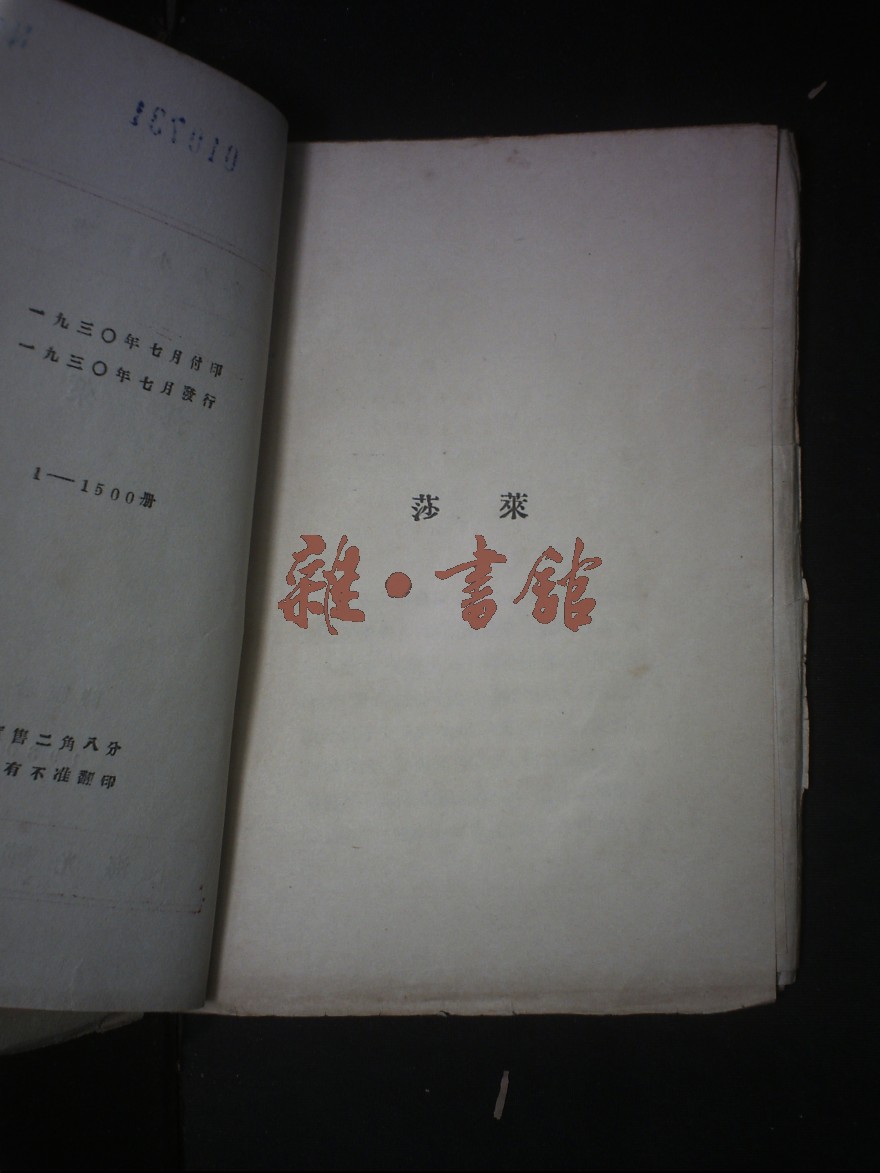 010731
一九三〇年七月付印
一九三〇年七月發行
1—1500册
售二角八分
有不准翻印
莎萊
雜·書館